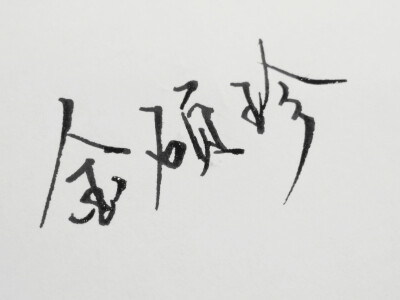 金硕珍